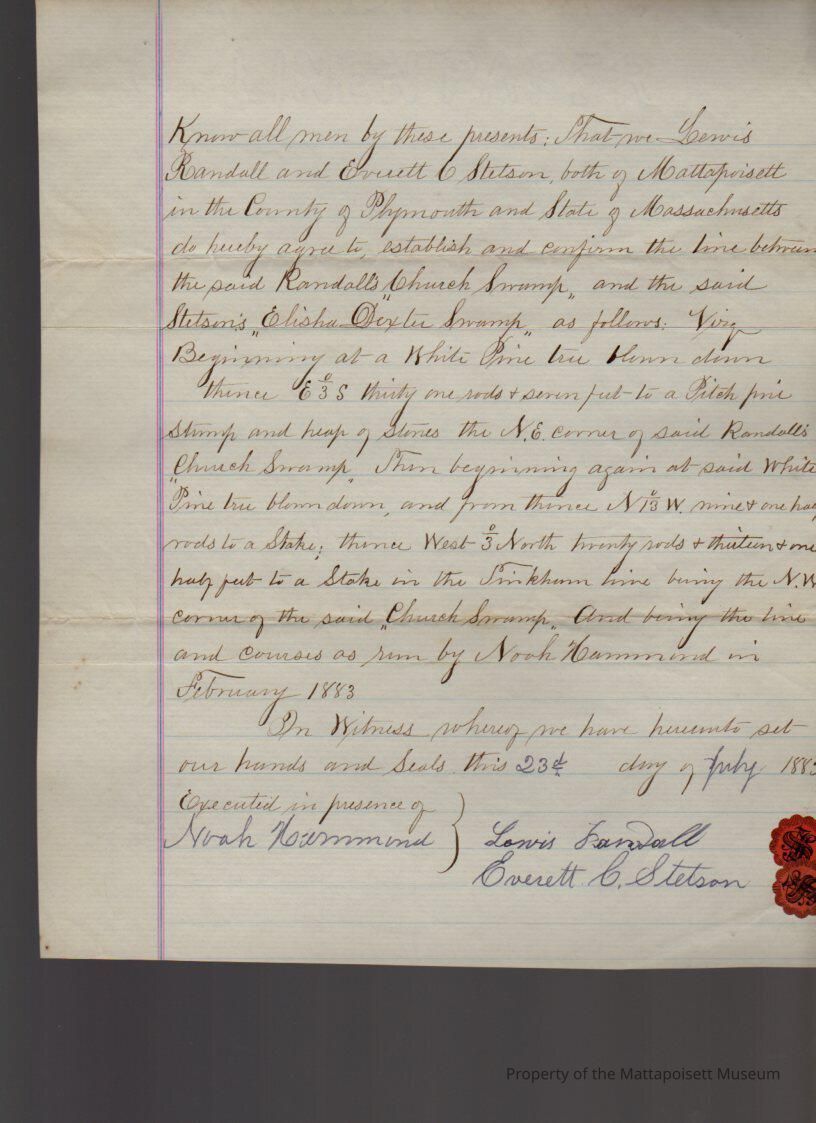 Know all men by these presents; That we Lewis
Randall and Everett C Stetson, both of Mattapoisett
in the County of Plymouth and State of Massachusetts
do hereby agree to, establish and confirm the line between
the said Randall's "Church Swamp" and the said
Stetson's "Elisha Dexter Swamp" as follows: Viz
Beginning at a White Pine tree blown down
thence E 3° S thirty one rods & seven feet to a Pitch pine
Stump and heap of stones the N.E. corner of said Randall's
"Church Swamp" Then beginning again at said White
Pine tree blown down, and from thence N 13° W. nine & one half
rods to a Stake; thence West 3° North twenty rods & thirteen & one
half feet to a Stake in the Tinkham line being the N.W
corner of the said "Church Swamp" And being the line
and courses as run by Noah Hammond in
February 1883
In Witness whereof we have hereunto set
our hands and Seals this 23d day of July 1883
Executed in presence of
Noah Hammond } Lewis Randall
Everett C. Stetson
Property of the Mattapoisett Museum